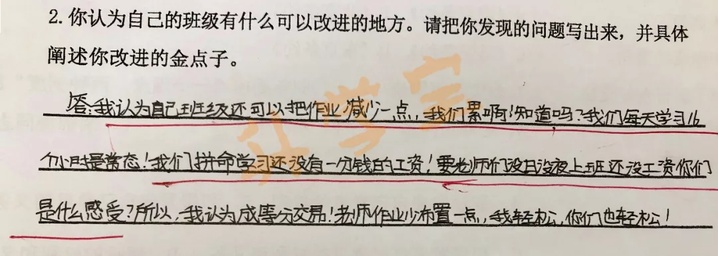 2. 你认为自己的班级有什么可以改进的地方。请把你发现的问题写出来，并具体
阐述你改进的金点子。
答:我认为自己班级还可以把作业减少一点，我们累啊!知道吗?我们每天学习16
个小时是常态!我们拼命学习还没有一分钱的工资!要老师们没日没夜上班还没工资你们
是什么感受?所以，我认为成事分交易!老师作业少布置一点，我轻松，你们也轻松!